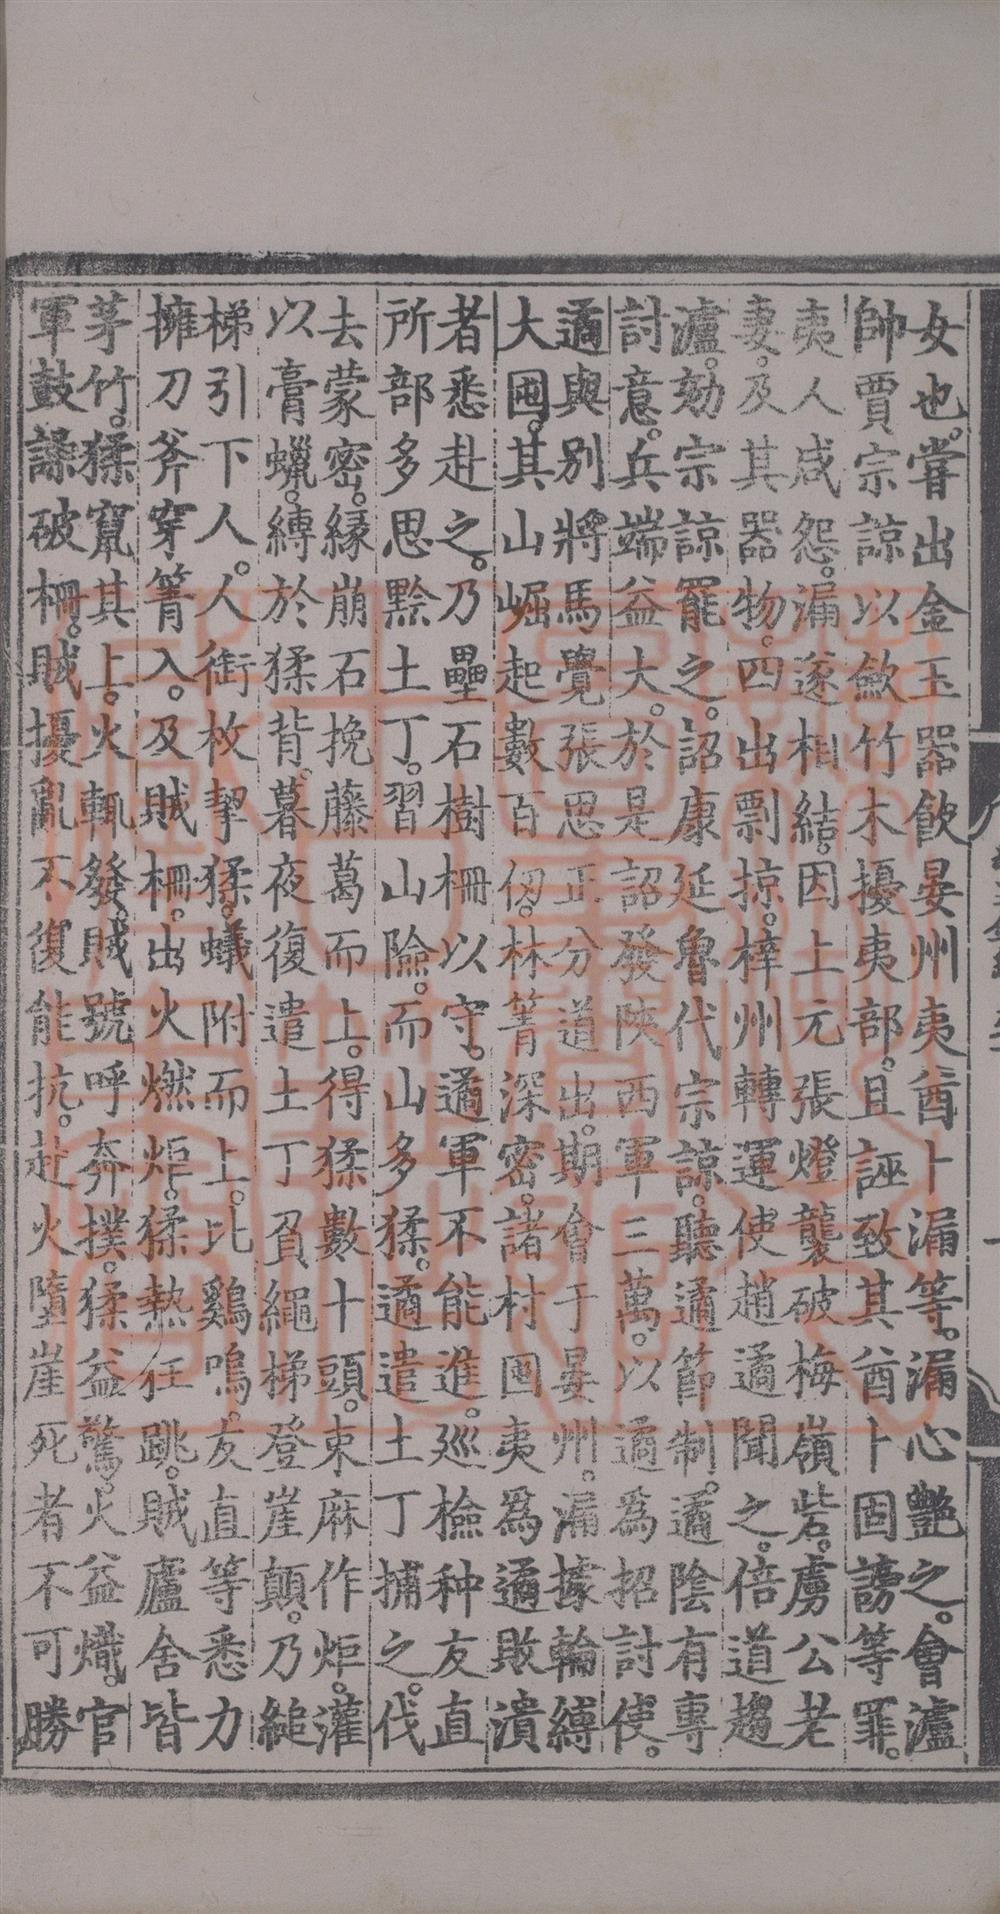 女也。嘗出金玉器飲晏州夷酋卜漏等。漏心艷之。會瀘
帥賈宗諒以斂竹木擾夷部。且誣致其酋卜固謗等罪。
夷人咸怨。漏遂相結。因上元張燈襲破梅嶺砦。虜公老
妻。及其器物。四出剽掠。梓州轉運使趙遹聞之。倍道趨
瀘。劾宗諒罷之。詔康延魯代宗諒。聽遹節制。遹陰有專
討意。兵端益大。於是詔發陝西軍三萬。以遹為招討使。
遹與別將馬覺張思正分道出。期會于晏州。漏據輪縛
大囤。其山崛起數百仞。林箐深密。諸村囤夷為遹敗潰
者悉赴之。乃壘石樹柵以守。遹軍不能進。巡檢种友直
所部多思黔土丁。習山險。而山多猱。遹遣土丁捕之。伐
去蒙密。緣崩石挽藤葛而上。得猱數十頭。束麻作炬。灌
以膏蠟。縛於猱背。暮夜復遣土丁負繩梯登崖顛。乃縋
梯引下人。人銜枚挈猱。蟻附而上。比鷄鳴。友直等悉力
擁刀斧穿箐入。及賊柵。出火燃炬。猱熱狂跳。賊廬舍皆
茅竹。猱竄其上。火輒發。賊號呼奔撲。猱益驚。火益熾。官
軍鼓譟破柵。賊擾亂不復能抗。赴火墮崖死者不可勝